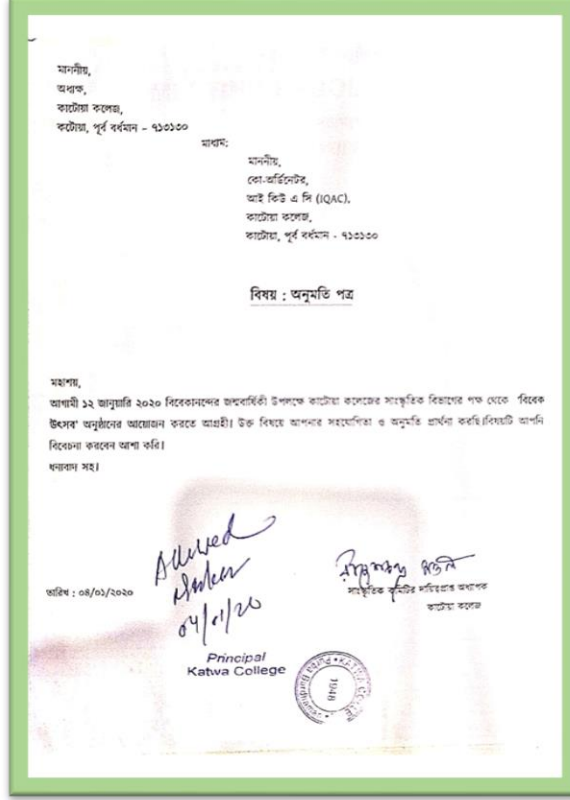 মাননীয়,
অধ্যক্ষ,
কাটোয়া কলেজ,
কটোয়া, পূর্ব বর্ধমান - ৭১৩১৩০
মাধ্যম:
মাননীয়,
কো-অর্ডিনেটর,
আই কিউ এ সি (IQAC),
কাটোয়া কলেজ,
কাটোয়া, পূর্ব বর্ধমান - ৭১৩১৩০
বিষয় : অনুমতি পত্র
মহাশয়,
আগামী ১২ জানুয়ারি ২০২০ বিবেকানন্দের জন্মবার্ষিকী উপলক্ষে কাটোয়া কলেজের সাংস্কৃতিক বিভাগের পক্ষ থেকে 'বিবেক
উৎসব' অনুষ্ঠানের আয়োজন করতে আগ্রহী। উক্ত বিষয়ে আপনার সহযোগিতা ও অনুমতি প্রার্থনা করছি।বিষয়টি আপনি
বিবেচনা করবেন আশা করি।
ধন্যবাদ সহ।
Allowed
04/01/20
তারিখ : ০৪/০১/২০২০
সাংস্কৃতিক কমিটির দায়িত্বপ্রাপ্ত অধ্যাপক
কাটোয়া কলেজ
Principal
Katwa College
KATWA COLLEGE
1948